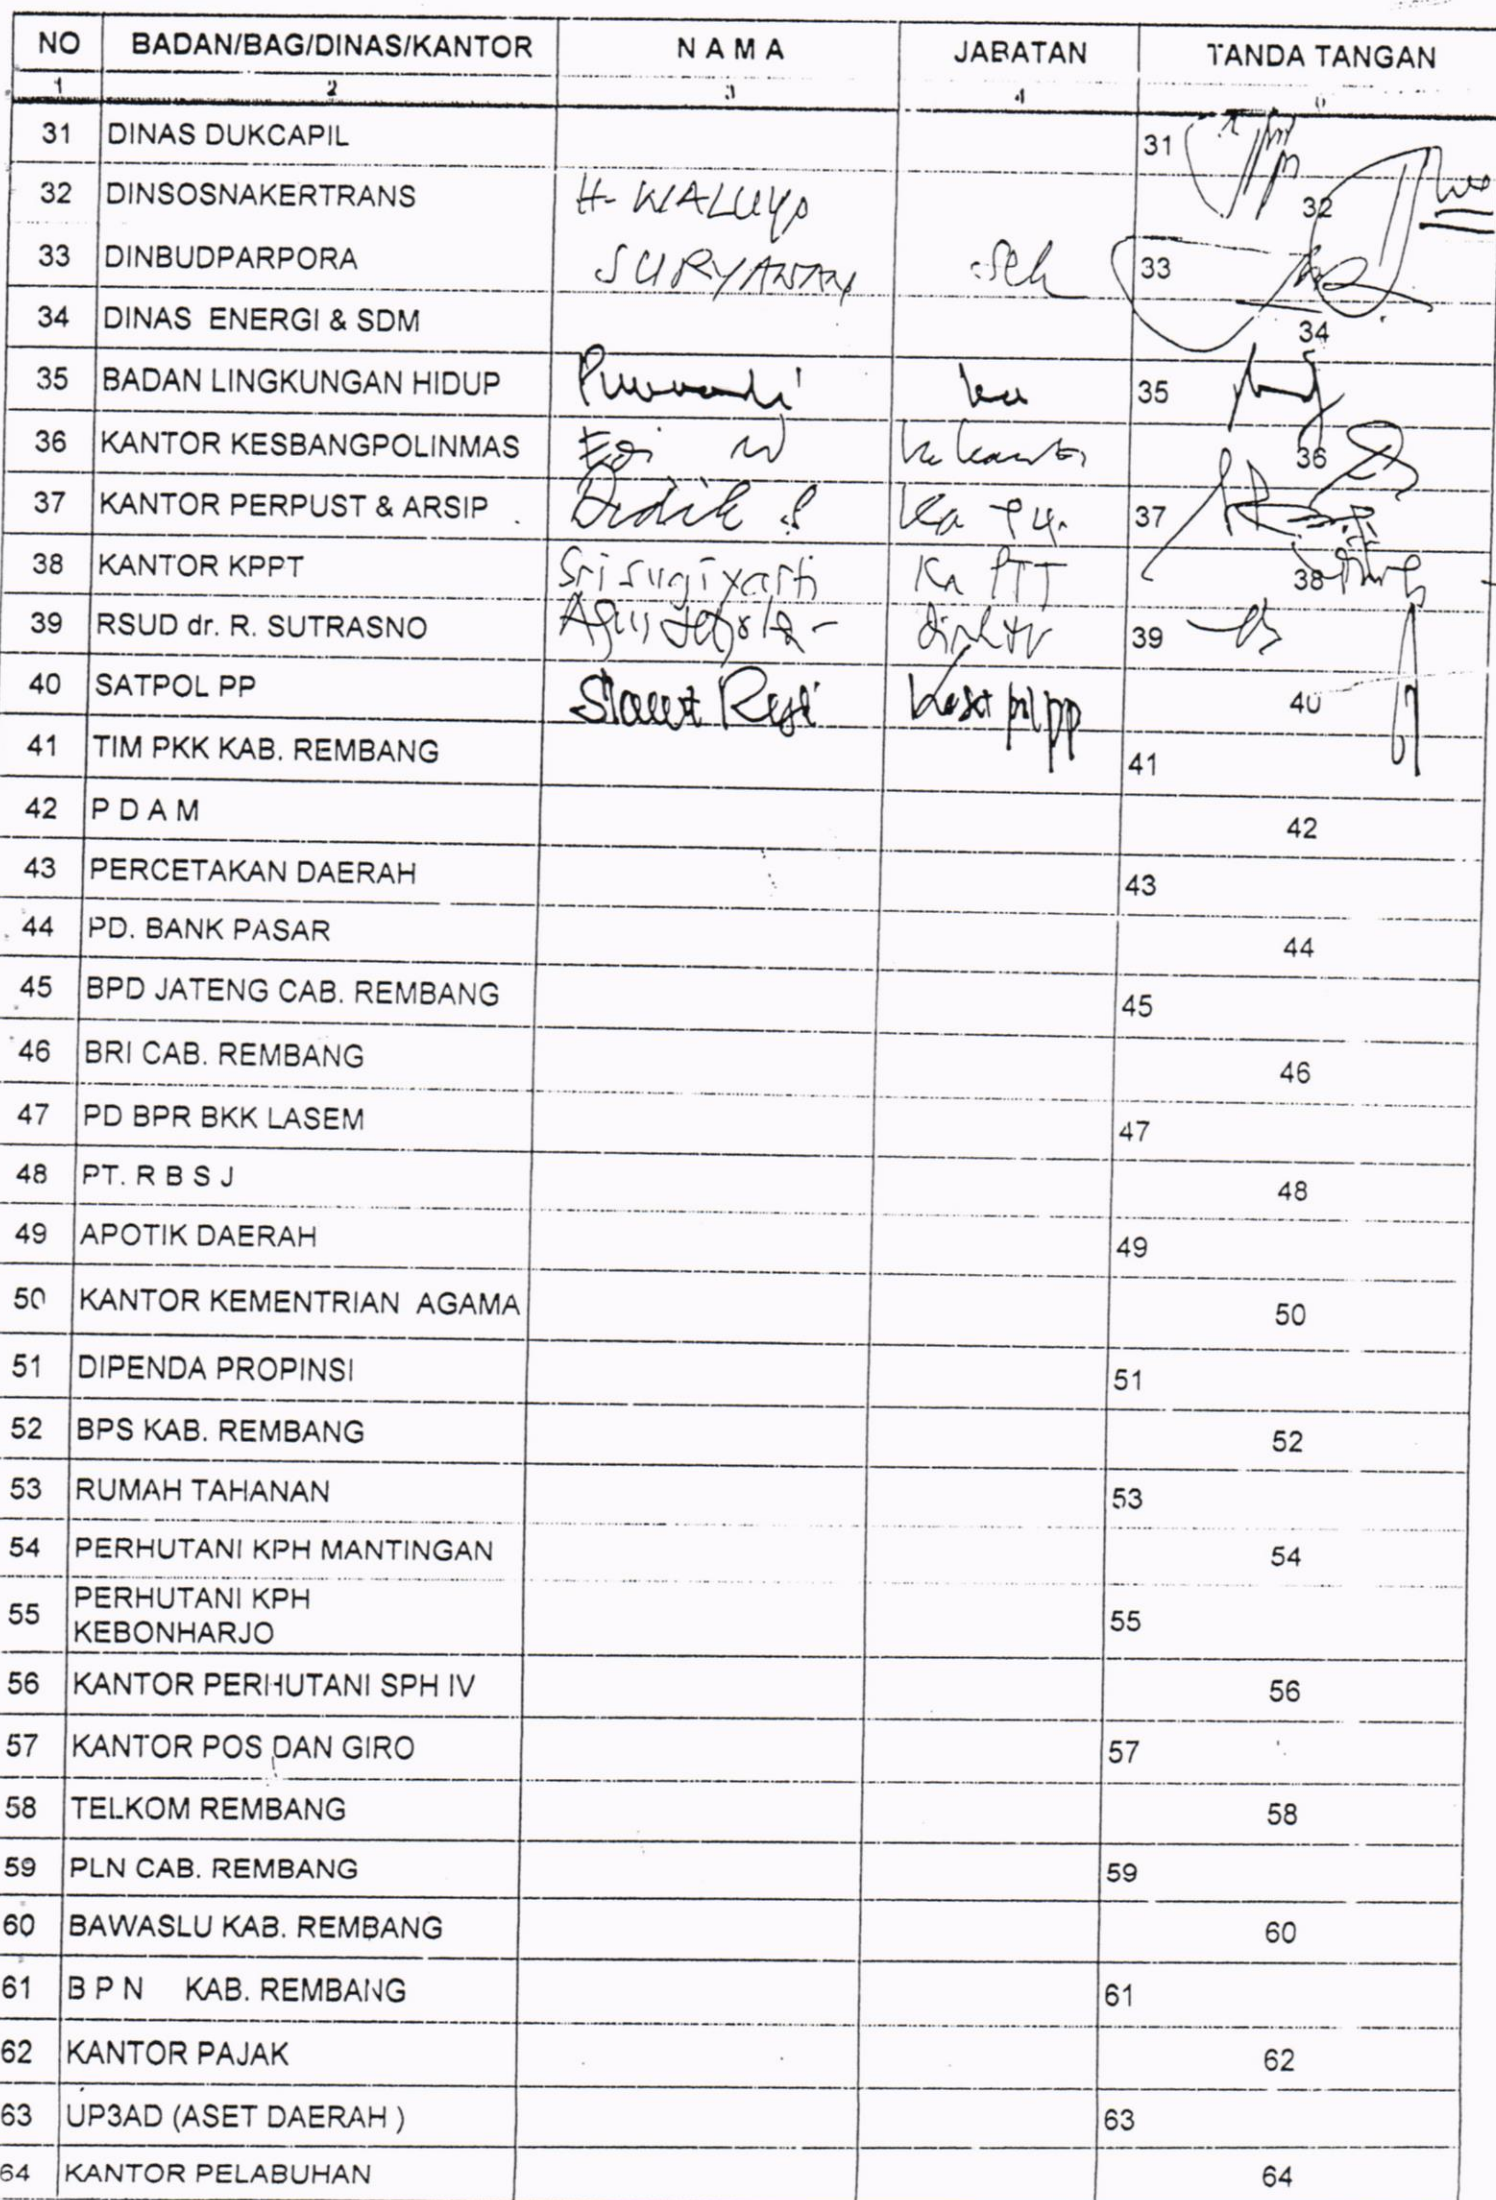 NO BADAN/BAG/DINAS/KANTOR N A M A JABATAN TANDA TANGAN
1 2 3 4
31 DINAS DUKCAPIL 31
32 DINSOSNAKERTRANS H. WALUYO 32
33 DINBUDPARPORA 33
34 DINAS ENERGI & SDM 34
35 BADAN LINGKUNGAN HIDUP 35
36 KANTOR KESBANGPOLINMAS 36
37 KANTOR PERPUST & ARSIP Didik S Ka 37
38 KANTOR KPPT Sri Sugiyarti Ka PTT 38
39 RSUD dr. R. SUTRASNO Agus 39
40 SATPOL PP Slamet 40
41 TIM PKK KAB. REMBANG 41
42 P D A M 42
43 PERCETAKAN DAERAH 43
44 PD. BANK PASAR 44
45 BPD JATENG CAB. REMBANG 45
46 BRI CAB. REMBANG 46
47 PD BPR BKK LASEM 47
48 PT. R B S J 48
49 APOTIK DAERAH 49
50 KANTOR KEMENTRIAN AGAMA 50
51 DIPENDA PROPINSI 51
52 BPS KAB. REMBANG 52
53 RUMAH TAHANAN 53
54 PERHUTANI KPH MANTINGAN 54
55 PERHUTANI KPH 55
KEBONHARJO
56 KANTOR PERHUTANI SPH IV 56
57 KANTOR POS DAN GIRO 57
58 TELKOM REMBANG 58
59 PLN CAB. REMBANG 59
60 BAWASLU KAB. REMBANG 60
61 B P N KAB. REMBANG 61
62 KANTOR PAJAK 62
63 UP3AD (ASET DAERAH ) 63
64 KANTOR PELABUHAN 64